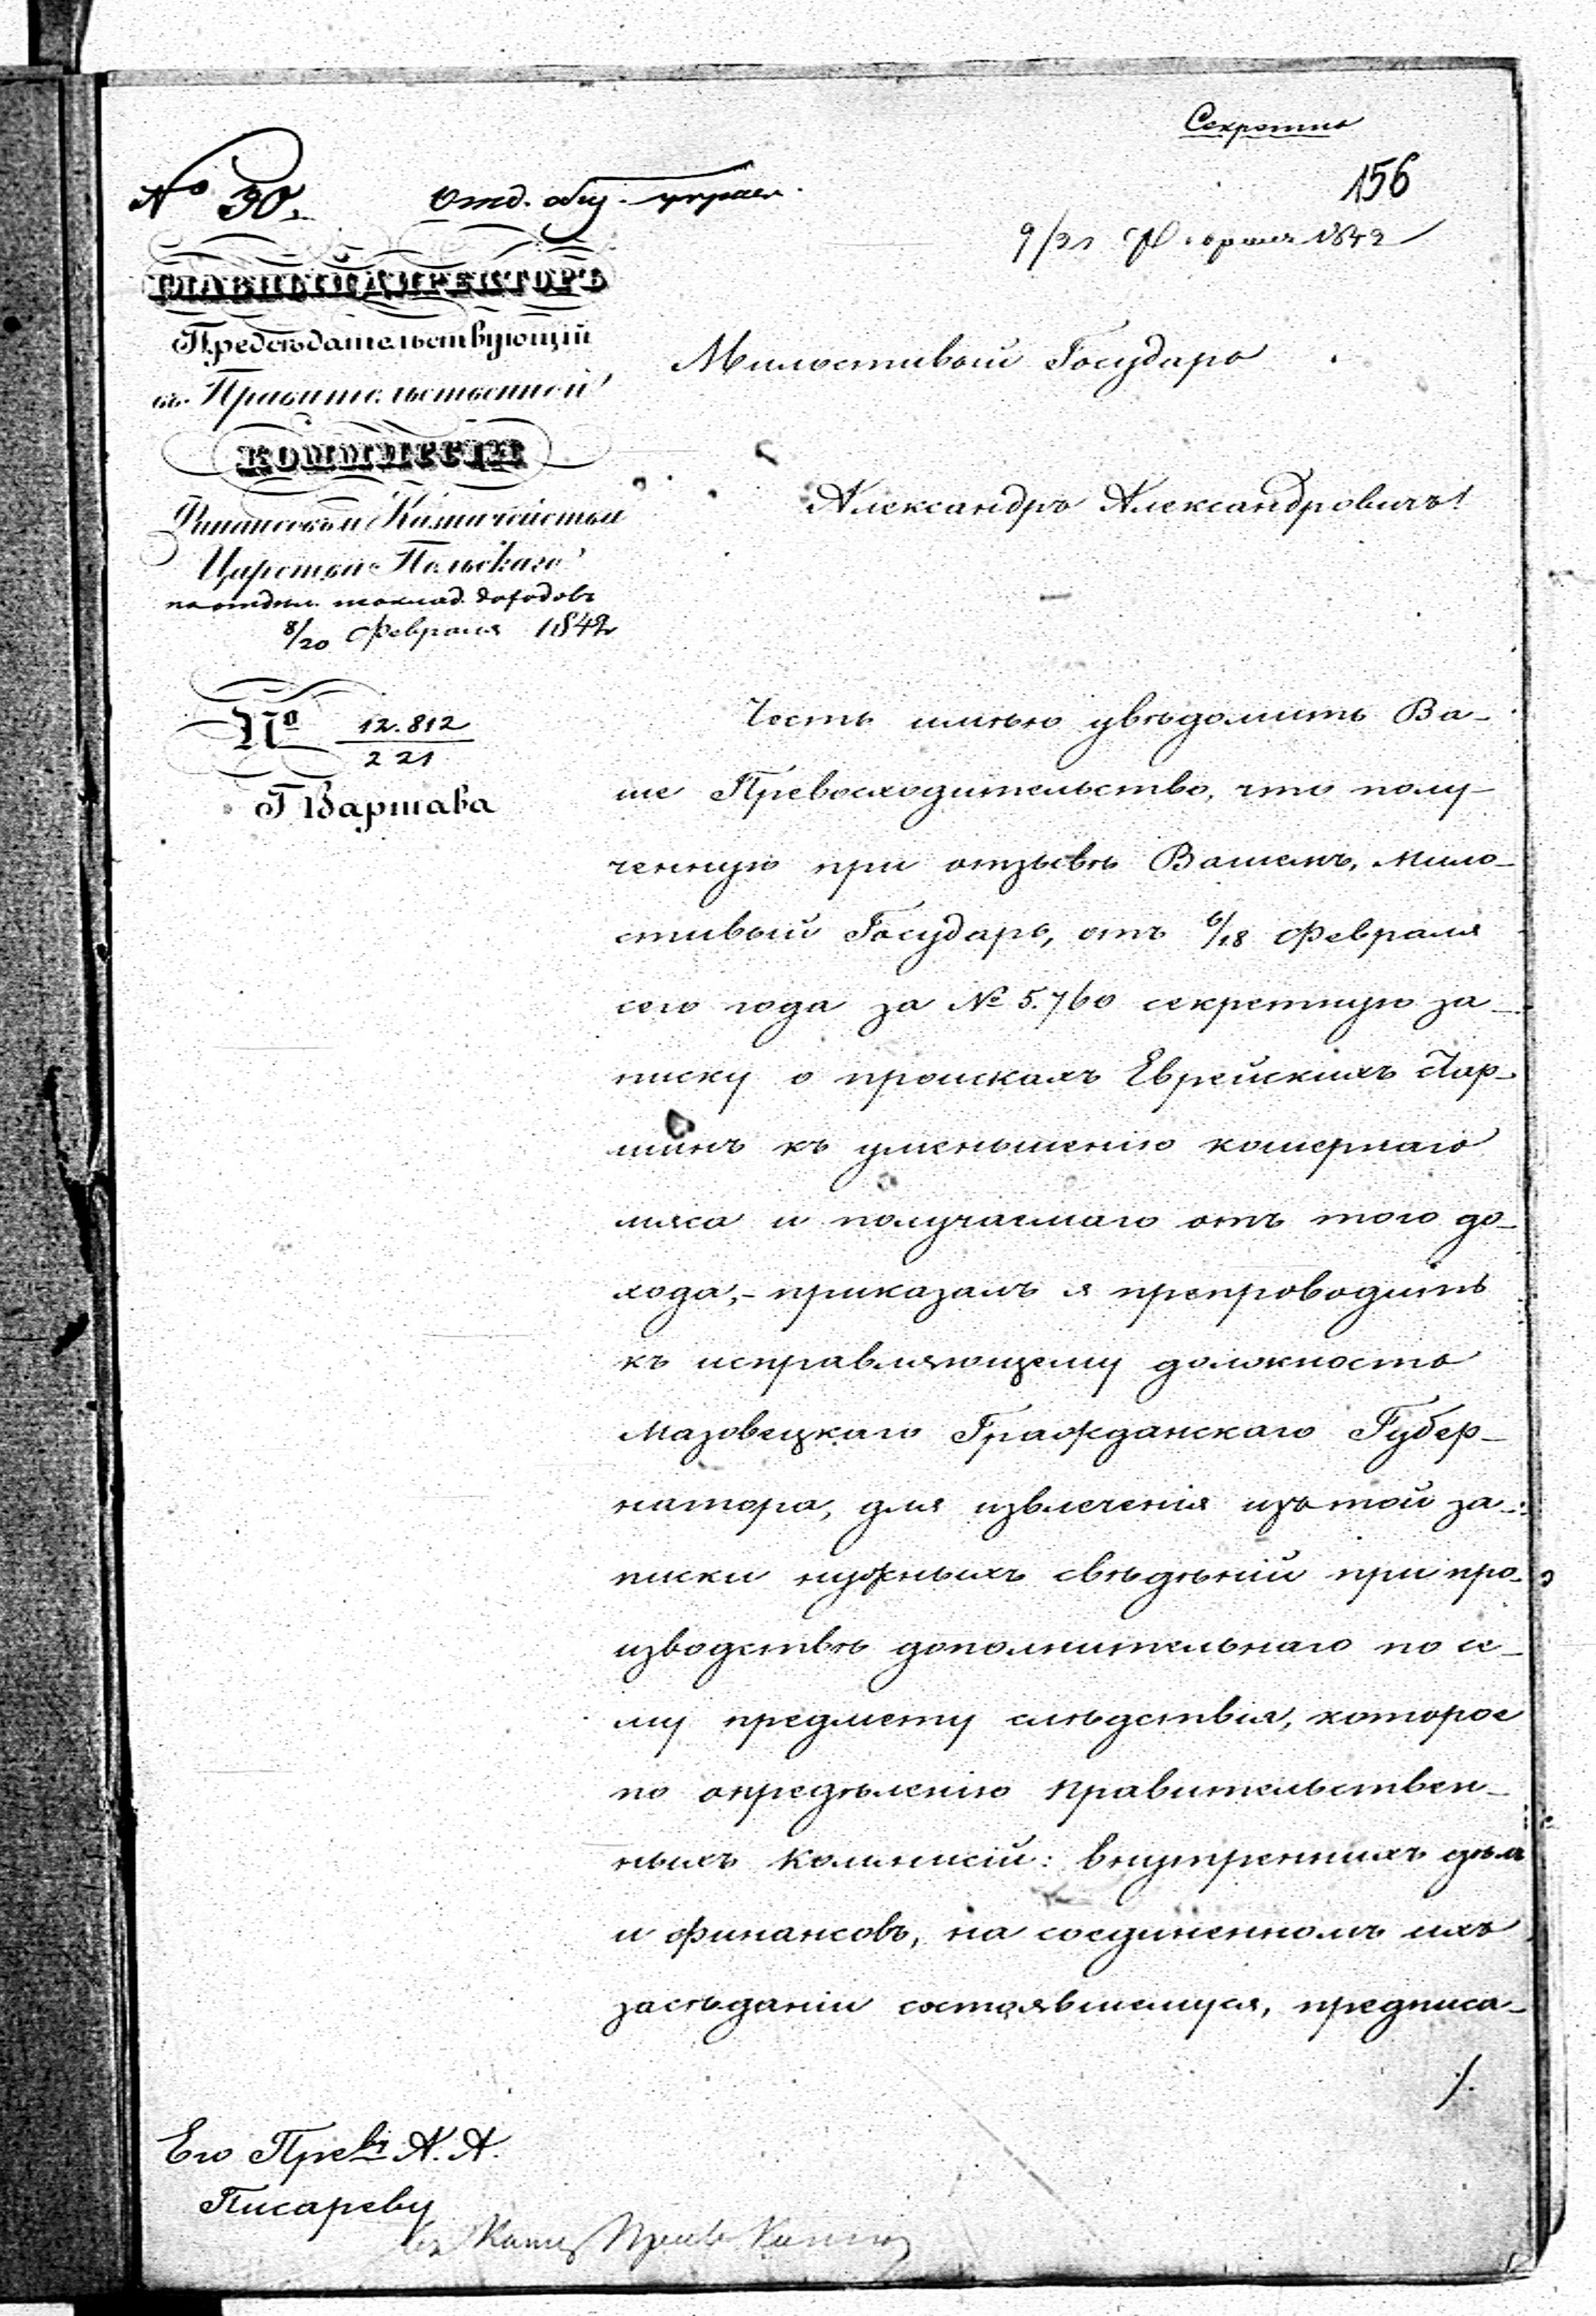 Секретно
156
№ 30.
Отд. общ. управл.
9/21 Февраля 1842
ГЛАВНЫЙ ДИРЕКТОРЪ
Предсѣдательствующій
въ Правительственной
КОММИССІИ
Финансовъ и Казначейства
Царства Польскаго
по отдѣл. неоклад. доходовъ
8/20 Февраля 1842
№ 12.812
221
Г Варшава
Милостивый Государь
Александръ Александровичъ!
Честь имѣю увѣдомить Ва-
ше Превосходительство, что полу-
ченную при отзывѣ Вашемъ, Мило-
стивый Государь, отъ 6/18 Февраля
сего года за № 5.760 секретную за-
писку о проискахъ Еврейскихъ Пар-
тій къ уменьшенію кошернаго
мяса и получаемаго отъ того до-
хода,- приказалъ я препроводить
къ исправляющему должность
Мазовецкаго Гражданскаго Губер-
натора, для извлеченія изъ той за-
писки нужныхъ свѣдѣній при про-
изводствѣ дополнительнаго по се-
му предмету слѣдствія, которое
по опредѣленію Правительствен-
ныхъ Коммисій: внутреннихъ дѣлъ
и финансовъ, на соединенномъ ихъ
засѣданіи состоявшемуся, предписа-
/.
Его Прев. А. А.
Писареву